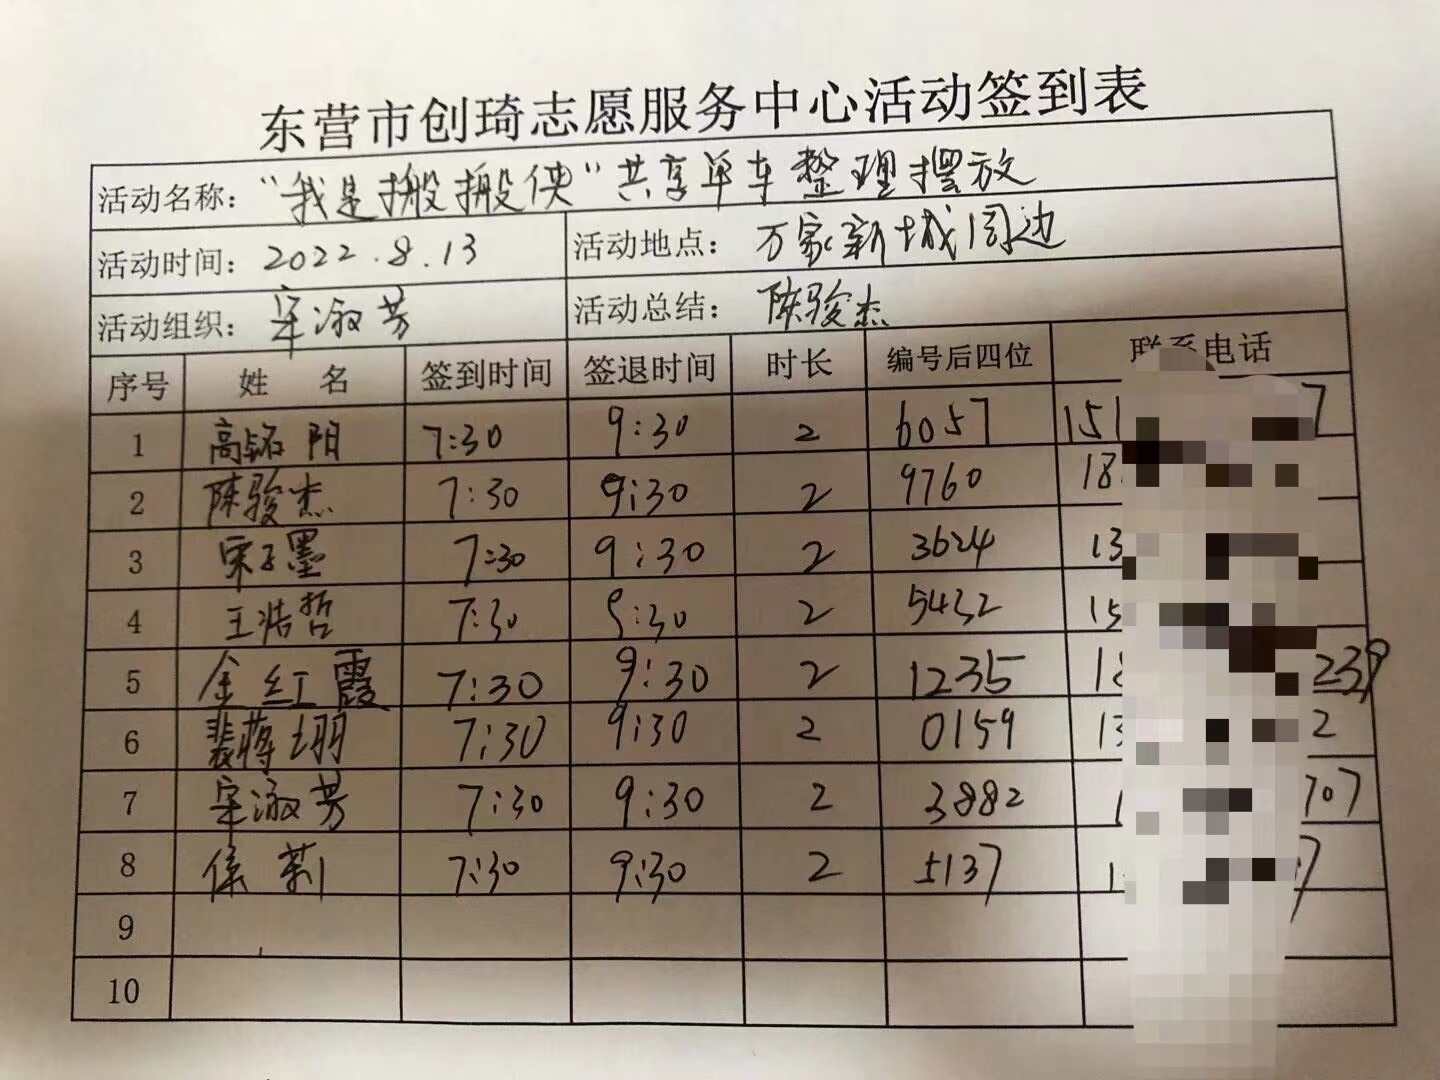 东营市创琦志愿服务中心活动签到表
活动名称: “我是搬搬侠”共享单车整理摆放
活动时间: 2022.8.13 活动地点: 万家新城周边
活动组织: 宋淑芳 活动总结: 陈骏杰
序号 姓 名 签到时间 签退时间 时长 编号后四位 联系电话
1 高铭阳 7:30 9:30 2 6057 151 7
2 陈骏杰 7:30 9:30 2 9760 18
3 宋子墨 7:30 9:30 2 3624 13
4 王浩哲 7:30 9:30 2 5432 15
5 金红霞 7:30 9:30 2 1235 18 239
6 裴蒋珊 7:30 9:30 2 0159 13 2
7 宋淑芳 7:30 9:30 2 3882 1 707
8 侯莉 7:30 9:30 2 5137 1 7
9
10